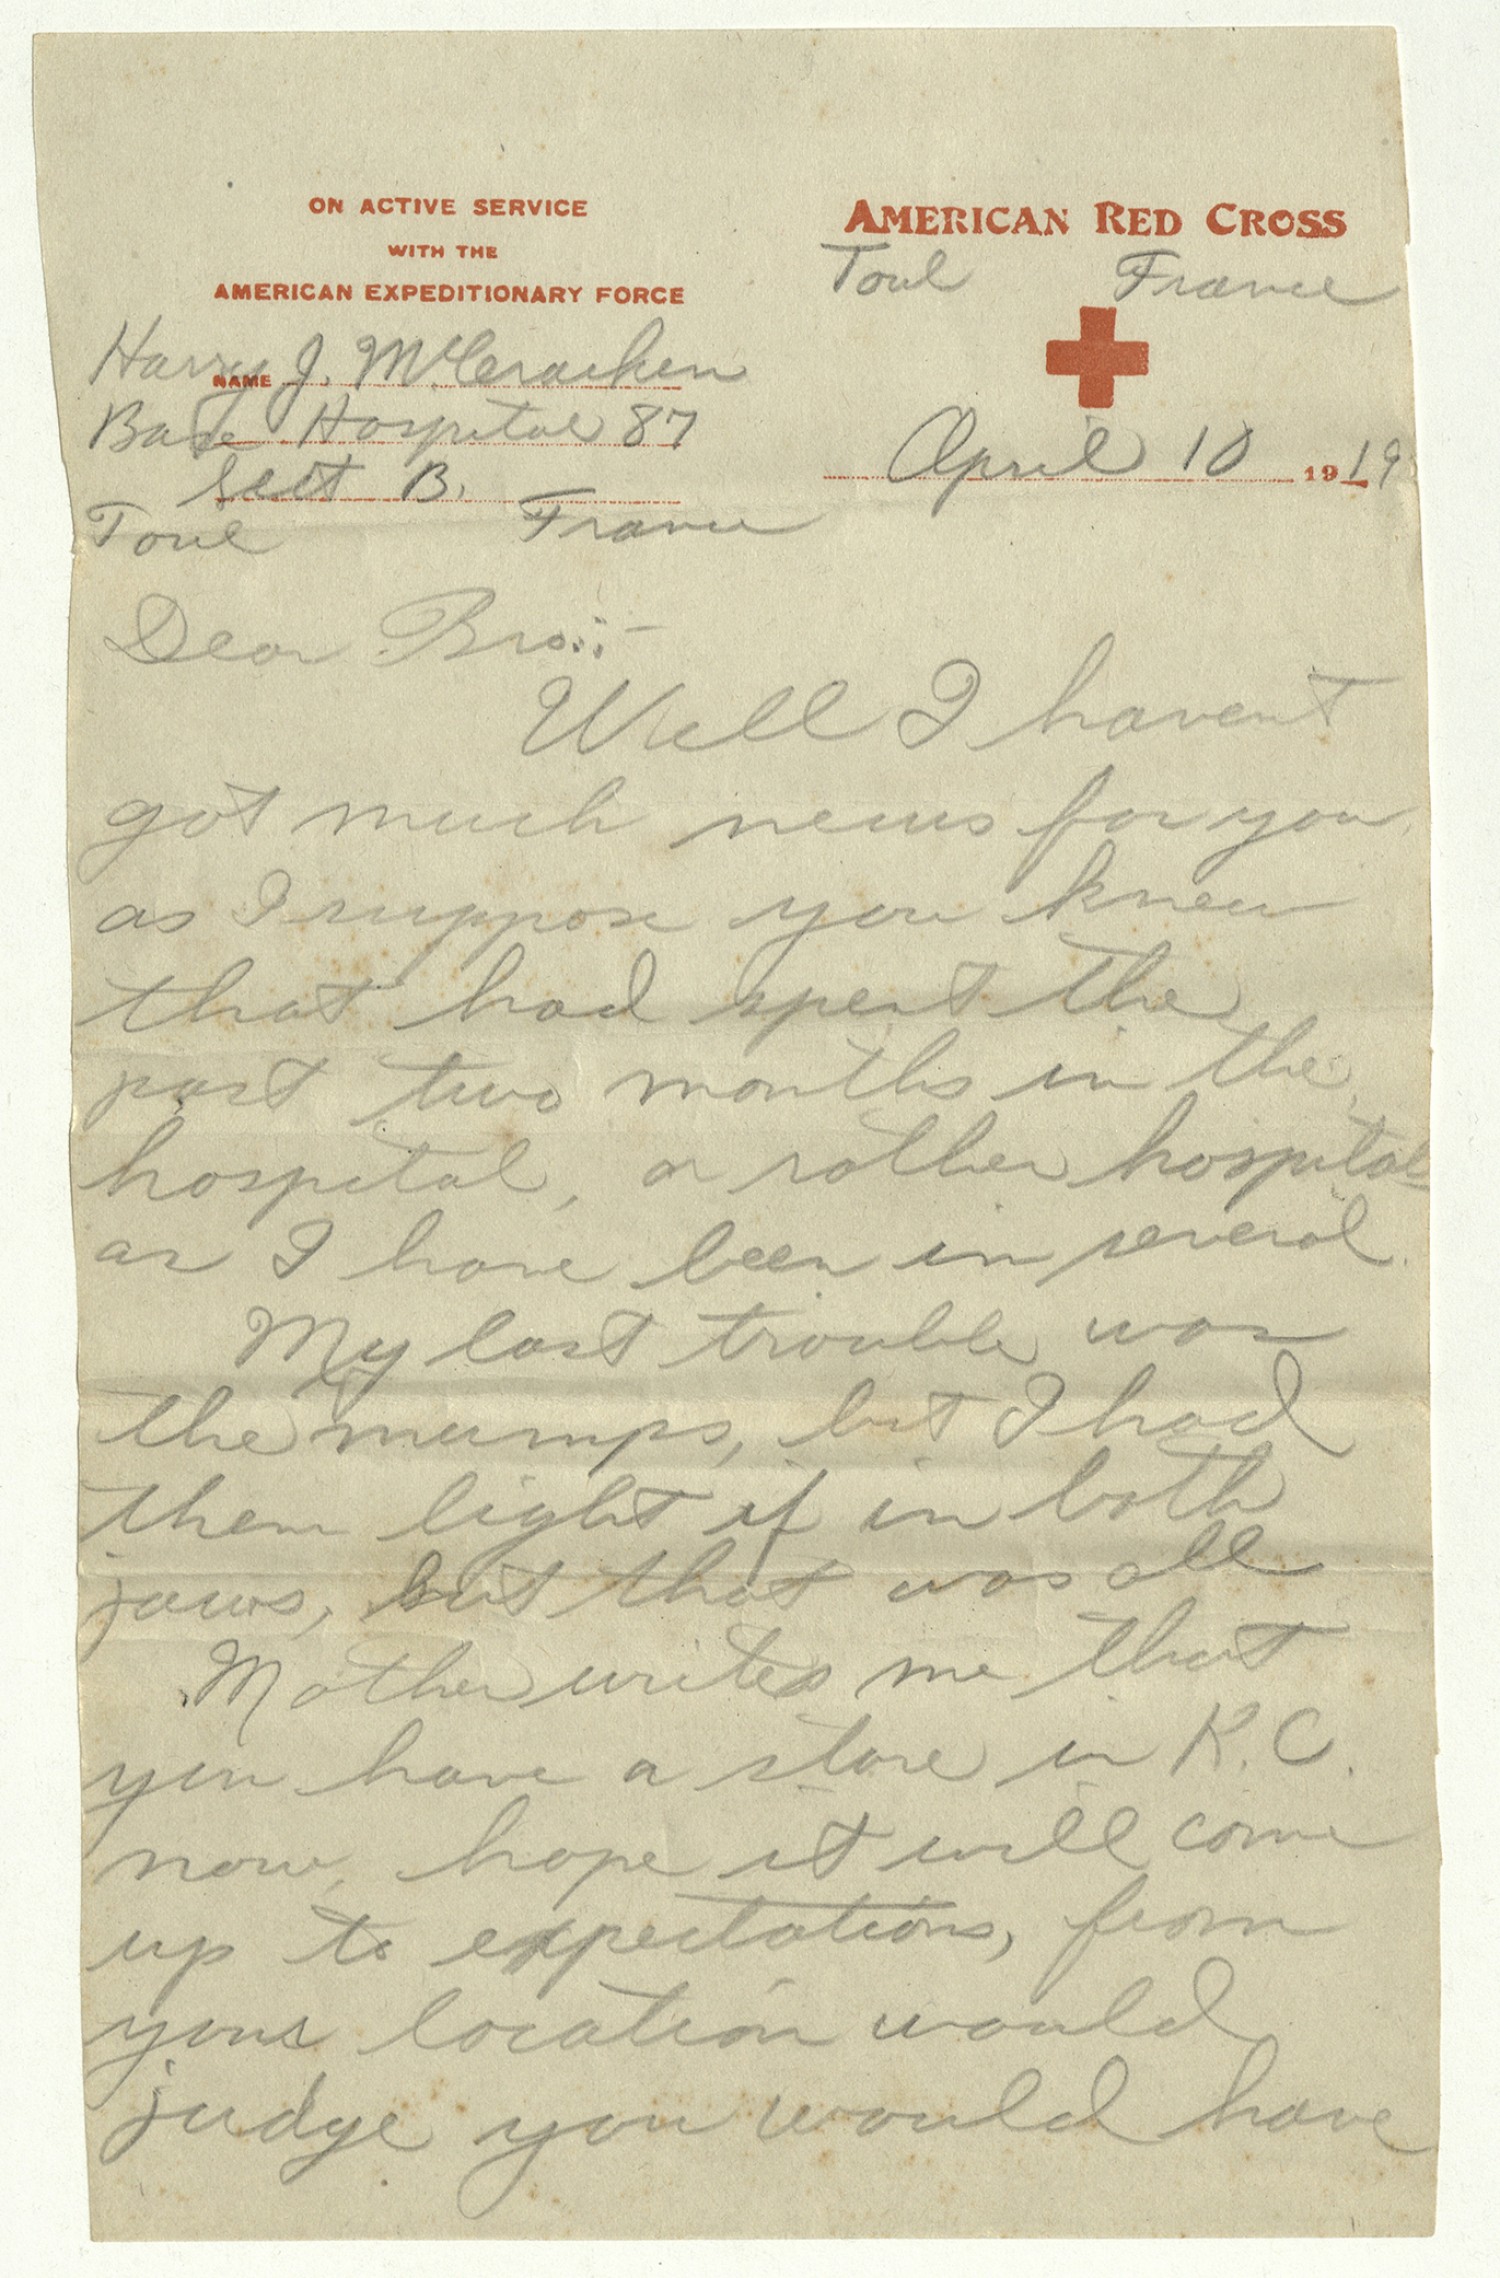 ON ACTIVE SERVICE
WITH THE
AMERICAN EXPEDITIONARY FORCE
AMERICAN RED CROSS
Toul France
NAME Harry J. McCracken
Base Hospital 87
Sect B.
Toul France
April 10 1919
Dear Bro::-
Well I havent
got much news for you,
as I suppose you knew
that had spent the
past two months in the
hospital, or rather hospitals
as I have been in several.
My last trouble was
the mumps, but I had
them light if in both
jaws, but that was all
Mother writes me that
you have a store in K.C.
now, hope it will come
up to expectations, from
your location would
judge you would have